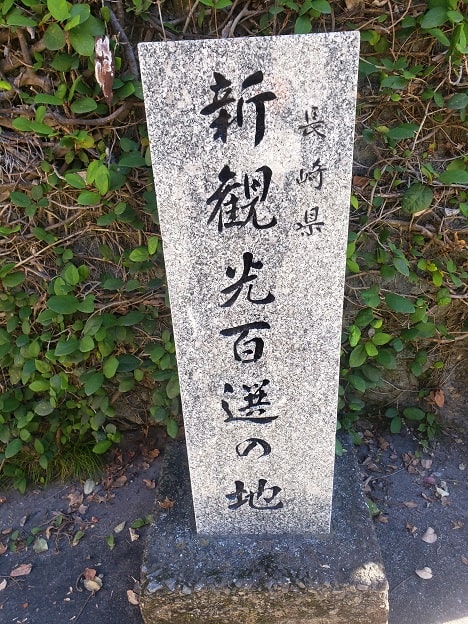 長崎県
新観光百選の地